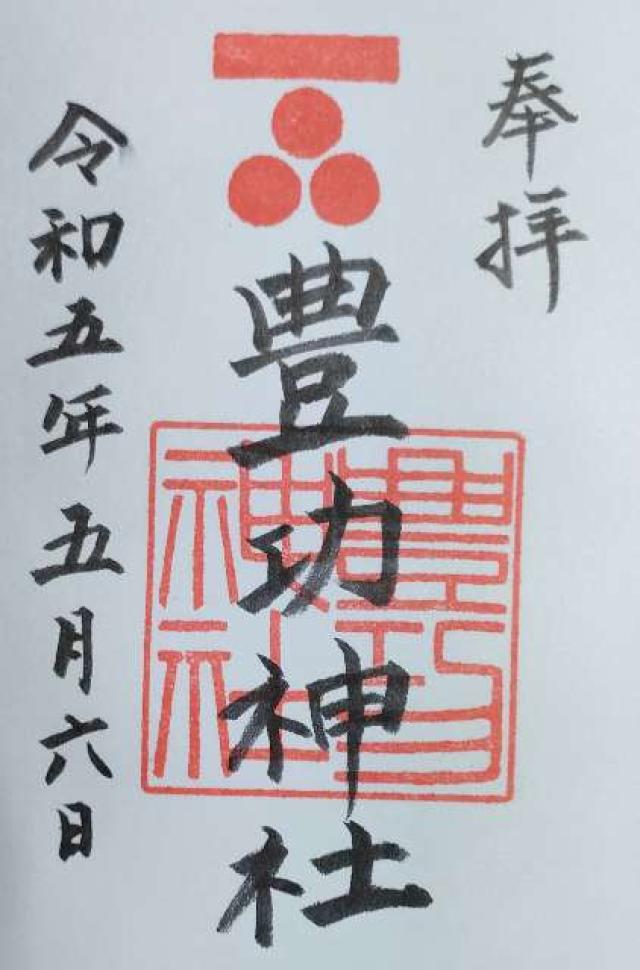 奉拝
豊功神社
豊功神社
令和五年五月六日